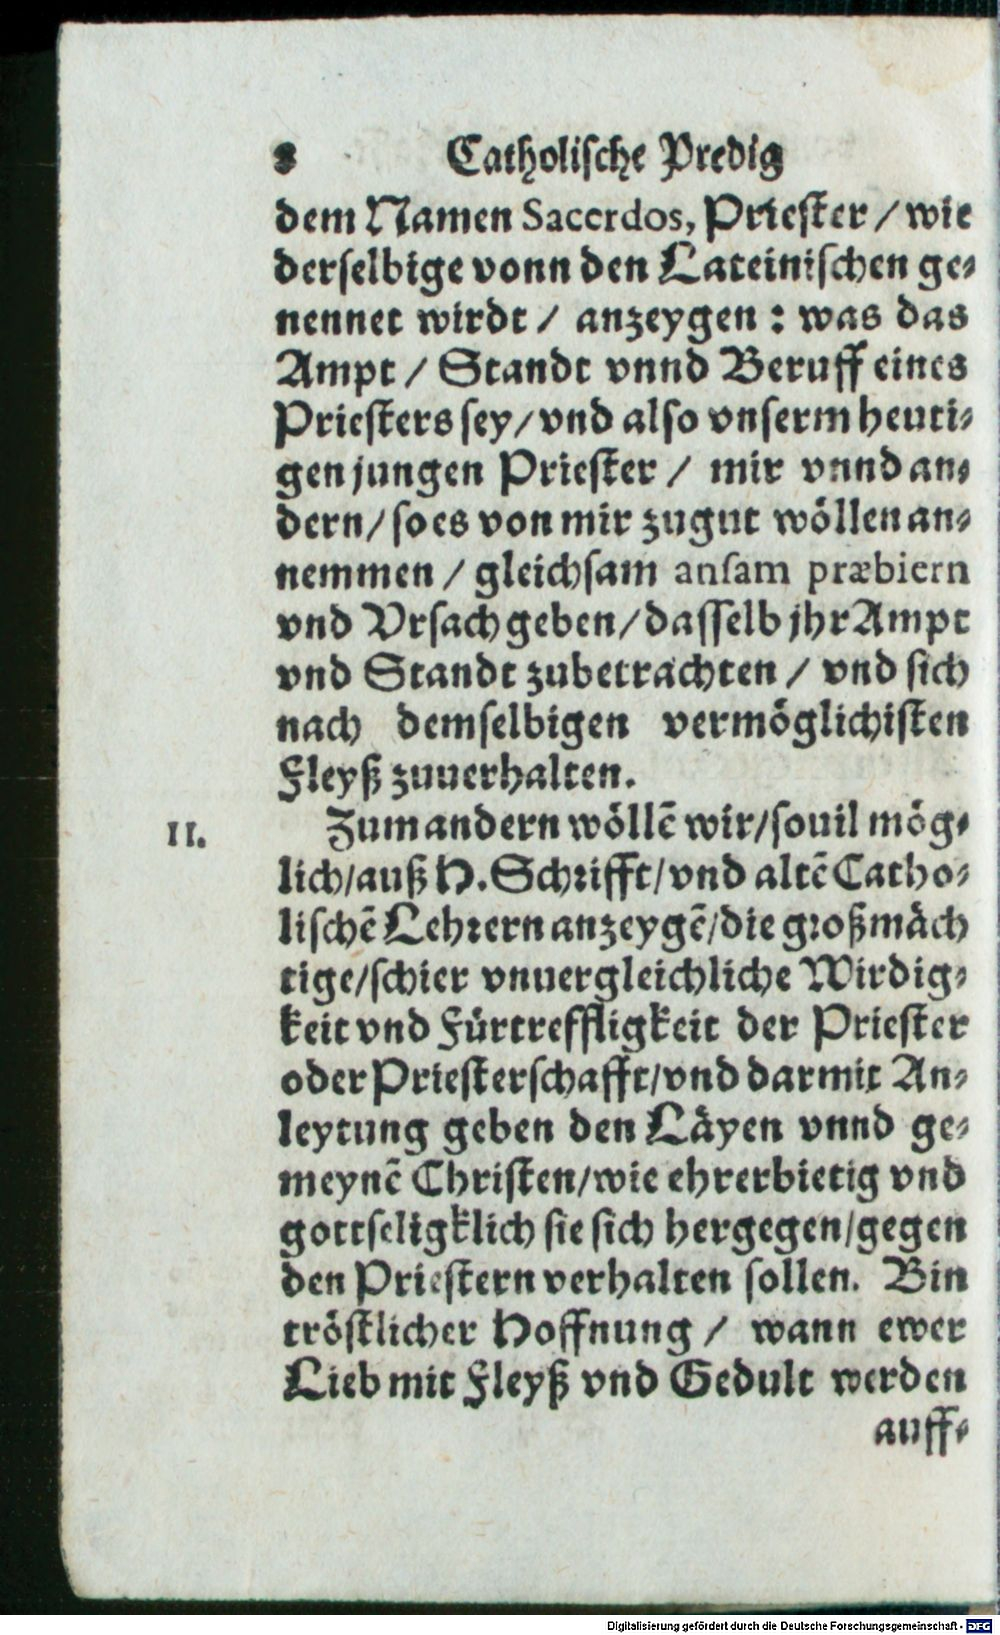 8 Catholische Predig
dem Namen Sacerdos, Priester / wie
derselbige vonn den Lateinischen ge-
nennet wirdt / anzeygen : was das
Ampt / Standt vnnd Beruff eines
Priesters sey / vnd also vnserm heuti-
gen jungen Priester / mir vnnd an-
dern / so es von mir zugut wöllen an-
nemmen / gleichsam ansam præbiern
vnd Vrsach geben / dasselb jhr Ampt
vnd Standt zubetrachten / vnd sich
nach demselbigen vermöglichisten
Fleyß zuuerhalten.
II. Zum andern wöllẽ wir / souil mög-
lich / auß H. Schrifft / vnd altẽ Catho-
lischẽ Lehrern anzeygẽ / die großmäch
tige / schier vnuergleichliche Wirdig-
keit vnd Fürtreffligkeit der Priester
oder Priesterschafft / vnd darmit An-
leytung geben den Läyen vnnd ge-
meynẽ Christen / wie ehrerbietig vnd
gottseligklich sie sich hergegen / gegen
den Priestern verhalten sollen. Bin
tröstlicher Hoffnung / wann ewer
Lieb mit Fleyß vnd Gedult werden
auff-
Digitalisierung gefördert durch die Deutsche Forschungsgemeinschaft - DFG